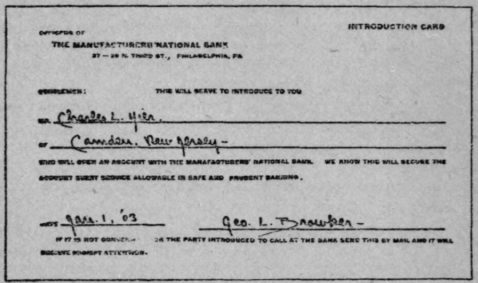 INTRODUCTION CARD
OFFICERS OF
THE MANUFACTURERS' NATIONAL BANK
27—29 N. THIRD ST., PHILADELPHIA, PA
GENTLEMEN: THIS WILL SERVE TO INTRODUCE TO YOU
MR Charles L.
OF Camden. New Jersey—
WHO WILL OPEN AN ACCOUNT WITH THE MANAFACTURERS' NATIONAL BANK. WE KNOW THIS WILL SECURE THE
ACCOUNT EVERY SERVICE ALLOWABLE IN SAFE AND PRUDENT BANKING.
Jan. 1, '03 Geo. L.
IF IT IS NOT OR THE PARTY INTRODUCED TO CALL AT THE BANK SEND THIS BY MAIL AND IT WILL
RECEIVE PROMPT ATTENTION.